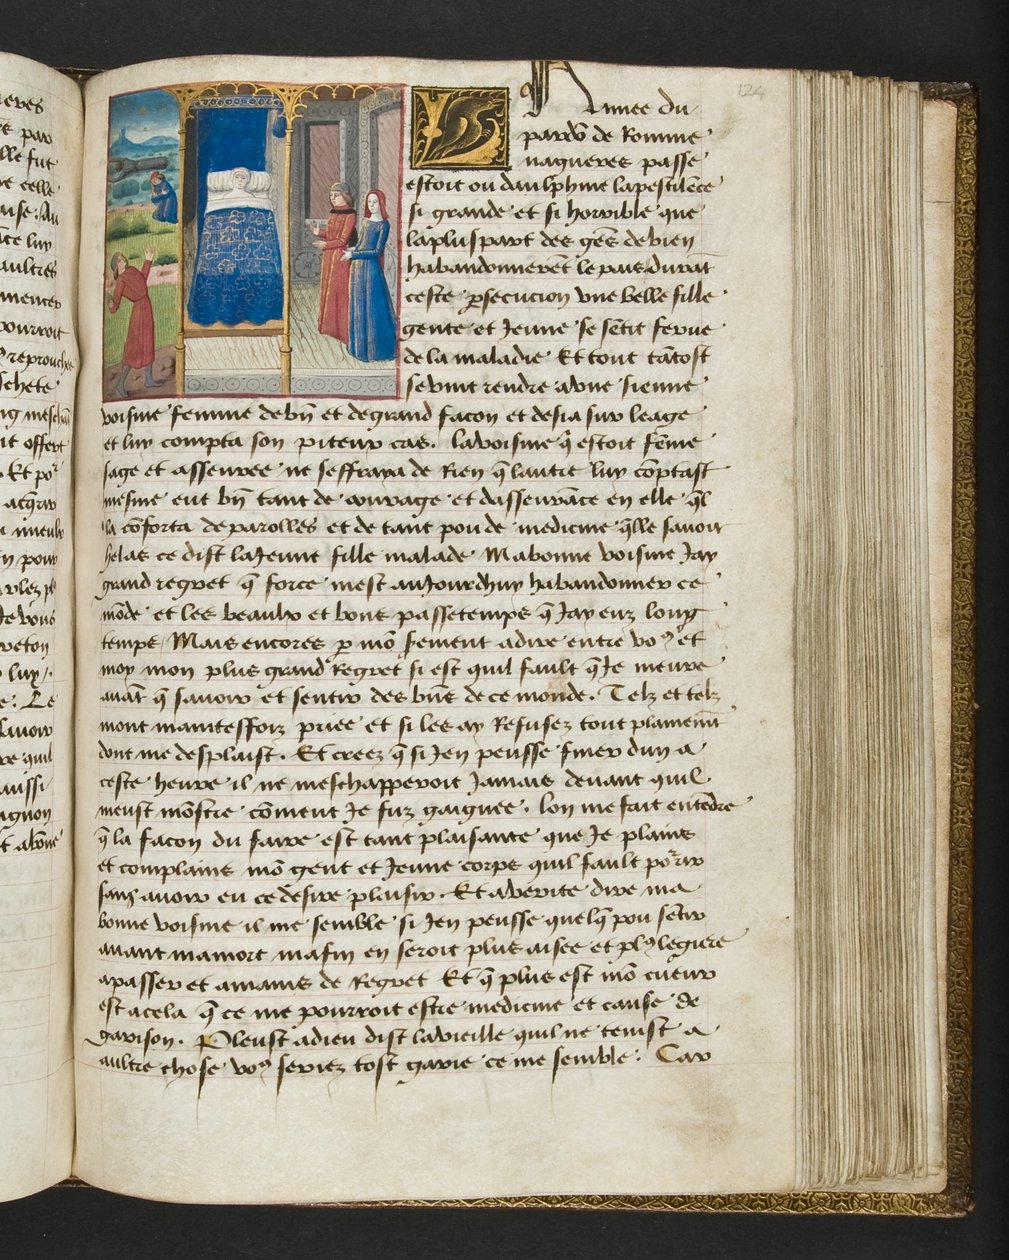 ieres
par
lle fut
celle
aise : Au
luy
aultres
pourroit
reprouche
offert
Et por
pour
Je vous
Le
savoir
que quil
aussi
124
L Annee du
pardon de Romme
nagueres passe
estoit ou daulphine la pestilēce
si grande et si horrible que
la pluspart des gēs de bien
habandonnerēt le pais durāt
ceste ꝑsecucion vne belle fille
gente et Jeune se sētit ferue
de la maladie Et tout tātost
se vint rendre a vne sienne
voisine femme de bn̄ et de grand facon et desia sur leage
et luy compta son piteux cas . la voisine q̄ estoit fēme
sage et asseuree ne seffraya de Rien q̄ lautre luy cōptast
mesme eut bn̄ tant de courage et dasseurāce en elle q̄l
la cōforta de parolles et de tant pou de medicine q̄lle sauoit
helas ce dist la Jeune fille malade Ma bonne voisine Jay
grand regret q̄ force mest au Jourdhuy habandonner ce
mōde et les beaulx et bons passetemps q̄ Jay euz long
temps Mais encores ꝑ mō serment a dire entre voꝰ et
moy mon plus grand Regret si est quil fault q̄ Je meure
auāt q̄ sauoir et sentir des bn̄s de ce monde . Telz et telz
mont maintesfoiz priee et si les ay Refusez tout plainemēt
dont me desplaist . Et creez q̄ si Jen peusse finer dun a
ceste heure il ne meschapperoit Jamais deuant quil
meust mōstre cōment Je fuz gaignee . lon me fait entēdre
q̄ la facon du faire est tant plaisante que Je plains
et complains mō gent et Jeune corps quil fault porrir
sans auoir eu ce desire plaisir . Et a verite dire ma
bonne voisine il me semble si Jen peusse quelq̄ pou sētir
auant ma mort ma fin en seroit plus aisee et plꝰ legiere
a passer et a mains de Regret Et q̄ plus est mō cueur
est a cela q̄ ce me pourroit estre medicine et cause de
garison . Pleust a dieu dist la vieille quil ne tenist a
aultre chose voꝰ seriez tost garie ce me semble : Car